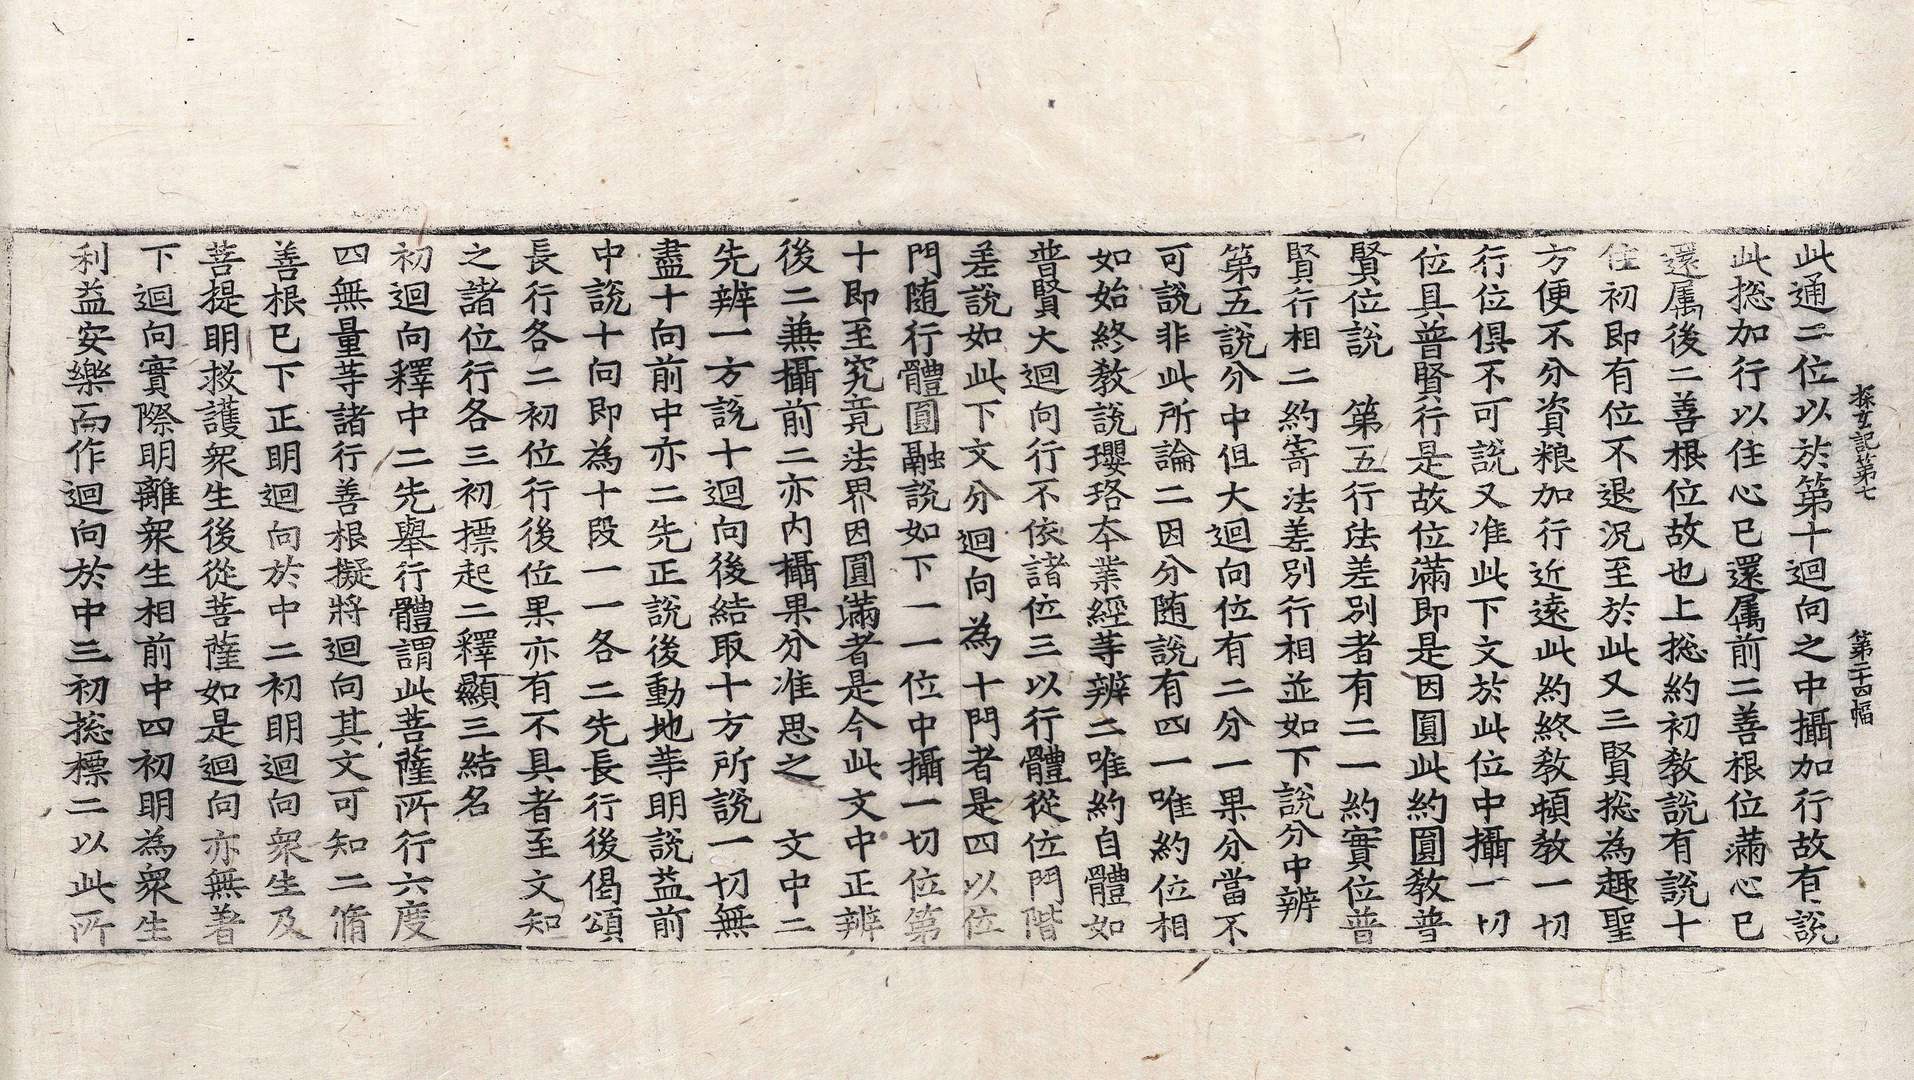 探玄記第七　第二十四幅
此通二位以於第十迴向之中攝加行故有說
此捴加行以住心已還属前二善根位滿心已
還属後二善根位故也上捴約初教說有說十
住初即有位不退況至於此又三賢捴為趣聖
方便不分資粮加行近遠此約終教頓教一切
行位俱不可說又准此下文於此位中攝一切
位具普賢行是故位滿即是因圓此約圓教普
賢位說　第五行法差別者有二一約實位普
賢行相二約寄法差別行相並如下說分中辨
第五說分中但大迴向位有二分一果分當不
可說非此所論二因分随說有四一唯約位相
如始終教說瓔珞夲業經等辨二唯約自體如
普賢大迴向行不依諸位三以行體從位門階
差說如此下文分迴向為十門者是四以位
門随行體圓融說如下一一位中攝一切位第
十即至究竟法界因圓滿者是今此文中正辨
後二兼攝前二亦內攝果分准思之　文中二
先辨一方說十迴向後結取十方所說一切無
盡十向前中亦二先正說後動地等明說益前
中說十向即為十段一一各二先長行後偈頌
長行各二初位行後位果亦有不具者至文知
之諸位行各三初標起二釋顯三結名
初迴向釋中二先舉行體謂此菩薩所行六度
四無量等諸行善根擬將迴向其文可知二脩
善根已下正明迴向於中二初明迴向眾生及
菩提明救護眾生後從菩薩如是迴向亦無著
下迴向實際明離眾生相前中四初明為眾生
利益安樂而作迴向於中三初捴標二以此所